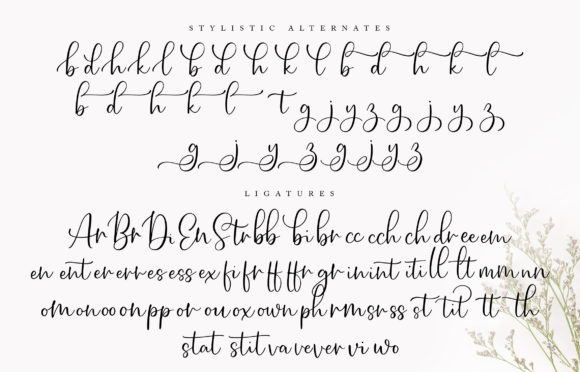 STYLISTIC ALTERNATES
b d h k l b d h k l b d h k l
b d h k l t g j y z g j y z
g j y z g j y z
LIGATURES
Ar Br Di En Str bb bi br cc cch ch dr ee em
en ent er err es ess ex fi fr ff ffr gr in int it iti ll lt mm nn
om on oo on pp or ou ox own ph rm sr ss st til tt th
stat stit va ve ver vi wo